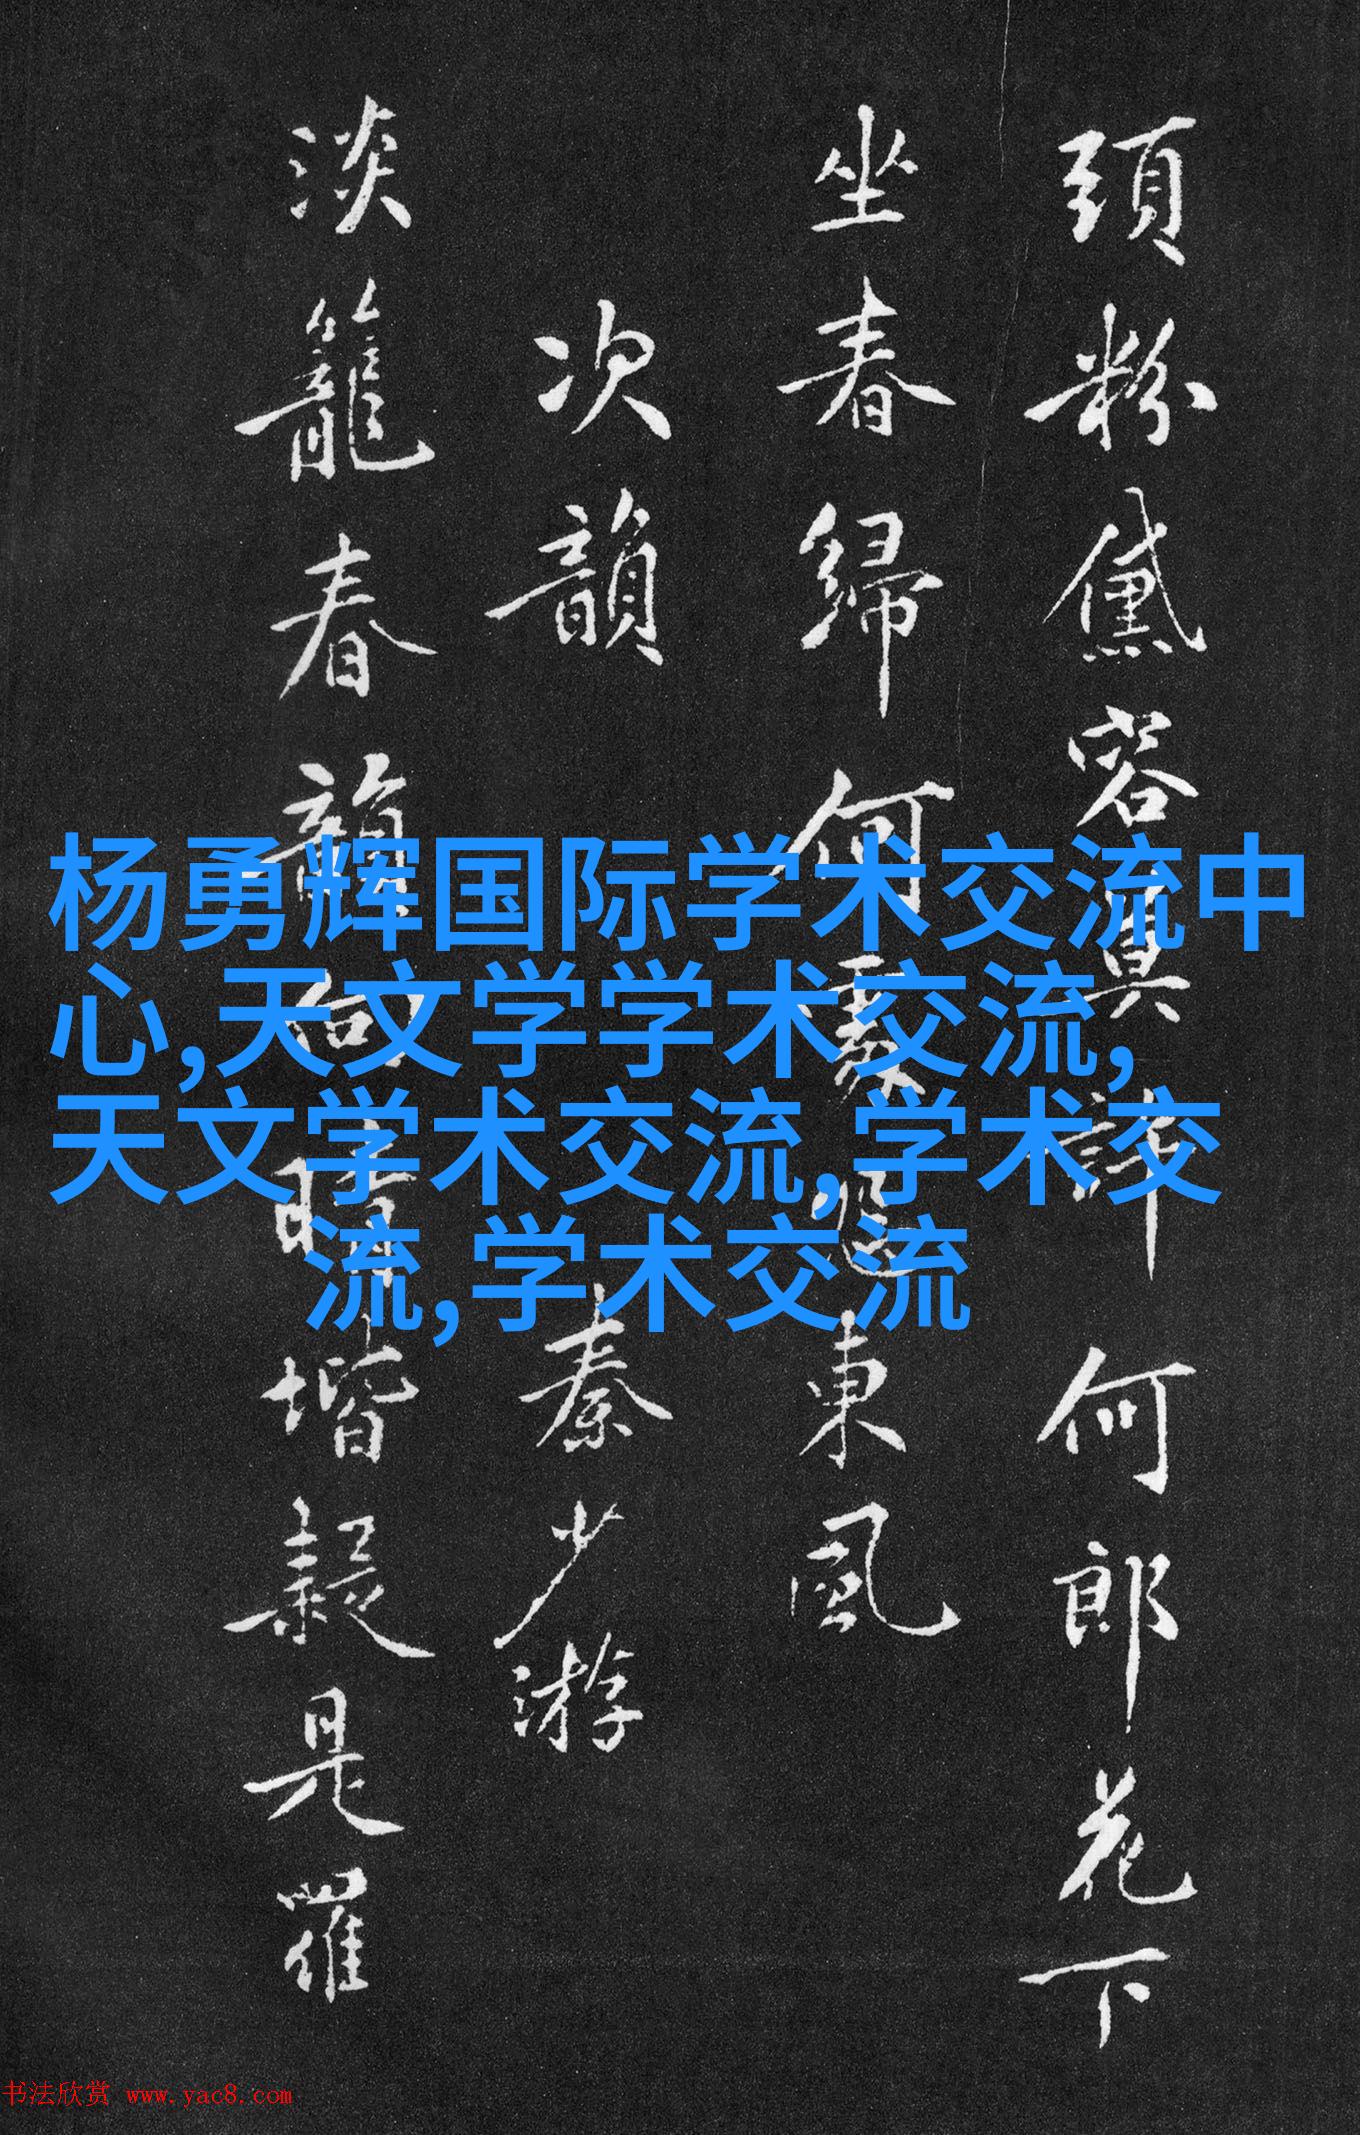 頭粉黛容真詳何郎花下
坐春歸何處追東風
次韻
秦少游
淡籠春韻向晴堦疑是羅
杨勇辉国际学术交流中
心,天文学学术交流,
天文学术交流,学术交
流,学术交流
书法欣赏 www.yac8.com